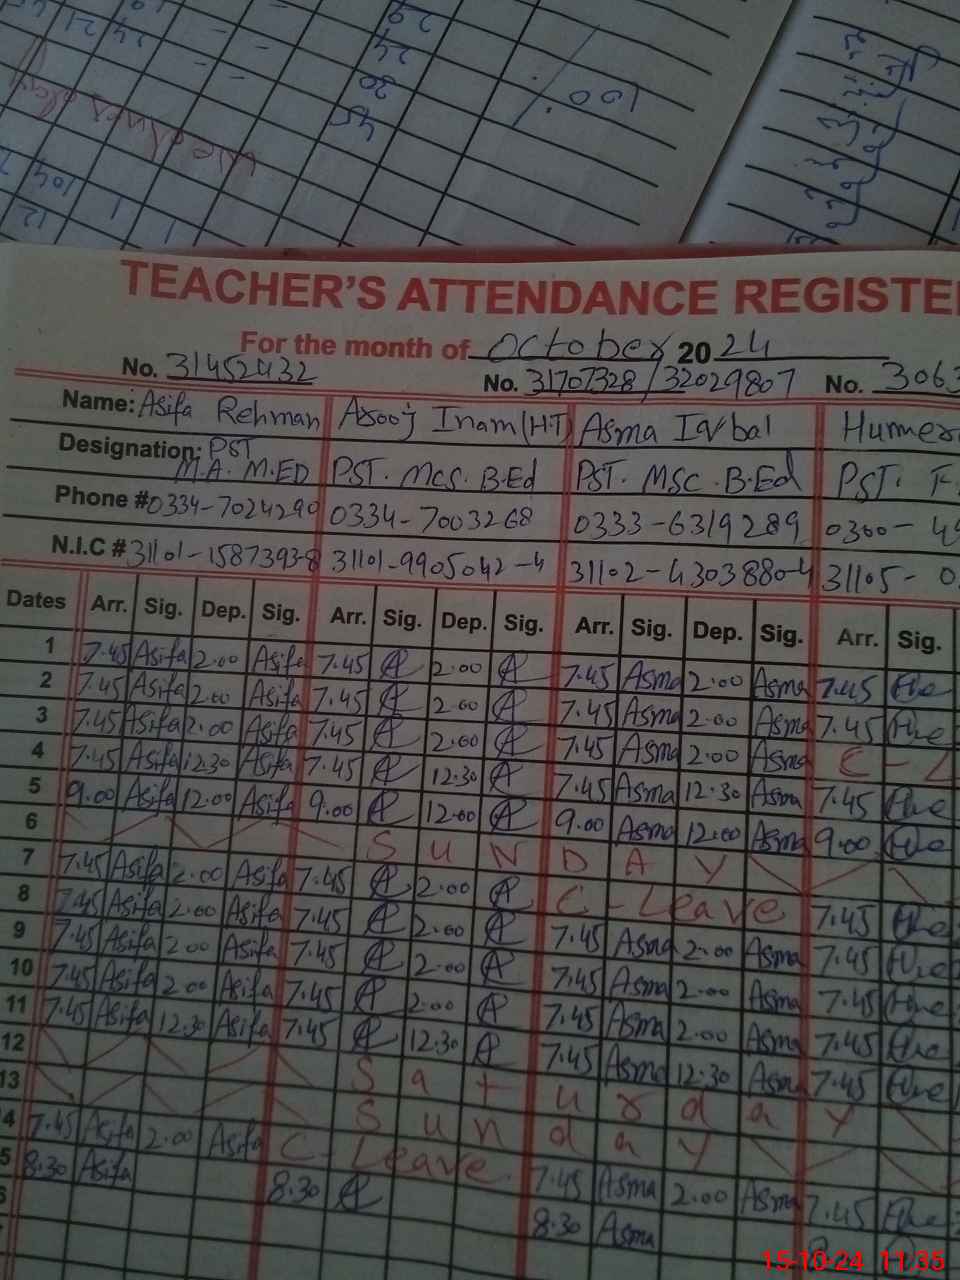 29
24
20
45
100
104
12
TEACHER'S ATTENDANCE REGISTE
For the month of October 2024
No. 31452432 No. 31707328/32029807 No. 3063
Name: Asifa Rehman Arooj Inam (H.T) Asma Iqbal Humer
Designation: PST M.A. M.ED PST. Mcs. B.Ed PST. MSC. B.Ed PST. F.
Phone # 0334-7024290 0334-7003268 0333-6319289 0300-49
N.I.C # 31101-1587393-8 31101-9905042-4 31102-4303880-4 31105-0
Dates Arr. Sig. Dep. Sig. Arr. Sig. Dep. Sig. Arr. Sig. Dep. Sig. Arr. Sig.
1 7.45 Asifa 2.00 Asifa 7.45 2.00 7.45 Asma 2.00 Asma 7.45
2 7.45 Asifa 2.00 Asifa 7.45 2.00 7.45 Asma 2.00 Asma 7.45
3 7.45 Asifa 2.00 Asifa 7.45 2.00 7.45 Asma 2.00 Asma C-L
4 7.45 Asifa 12.30 Asifa 7.45 12.30 7.45 Asma 12.30 Asma 7.45
5 9.00 Asifa 12.00 Asifa 9.00 12.00 9.00 Asma 12.00 Asma 9.00
6 SUNDAY
7 7.45 Asifa 2.00 Asifa 7.45 2.00 C-Leave 7.45
8 7.45 Asifa 2.00 Asifa 7.45 2.00 7.45 Asma 2.00 Asma 7.45
9 7.45 Asifa 2.00 Asifa 7.45 2.00 7.45 Asma 2.00 Asma 7.45
10 7.45 Asifa 2.00 Asifa 7.45 2.00 7.45 Asma 2.00 Asma 7.45
11 7.45 Asifa 12.30 Asifa 7.45 12.30 7.45 Asma 12.30 Asma 7.45
12 Saturday
13 Sunday
4 7.45 Asifa 2.00 Asifa C-Leave. 7.45 Asma 2.00 Asma 7.45
5 8.30 Asifa 8.30 8.30 Asma
6
15-10-24 11:35